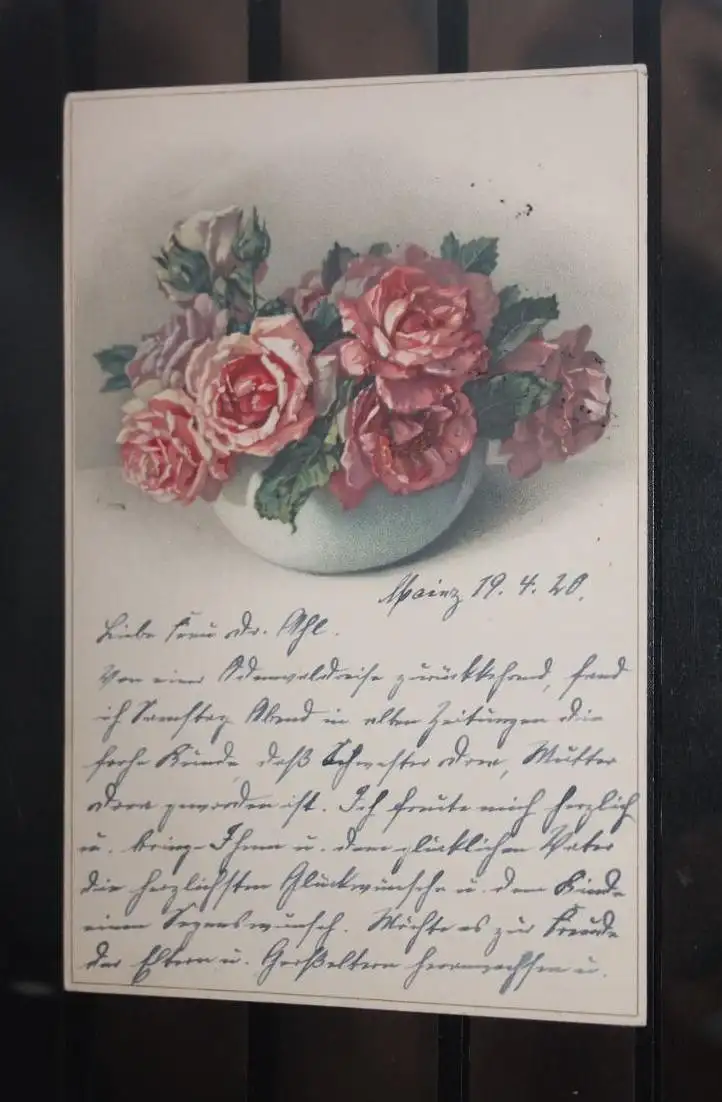 Mainz 19. 4. 20.
Liebe Frau Dr. Ahl.
Von einer Odenwaldreise zurückkehrend, fand
ich Samstag Abend in alten Zeitungen die
frohe Kunde daß Schwester Dora, Mutter
Dora geworden ist. Ich freute mich herzlich
u. bringe Ihnen u. dem glücklichen Vater
die herzlichsten Glückwünsche u. dem Kinde
einen Segenswunsch. Möchte es zur Freude
der Eltern u. Großeltern heranwachsen u.